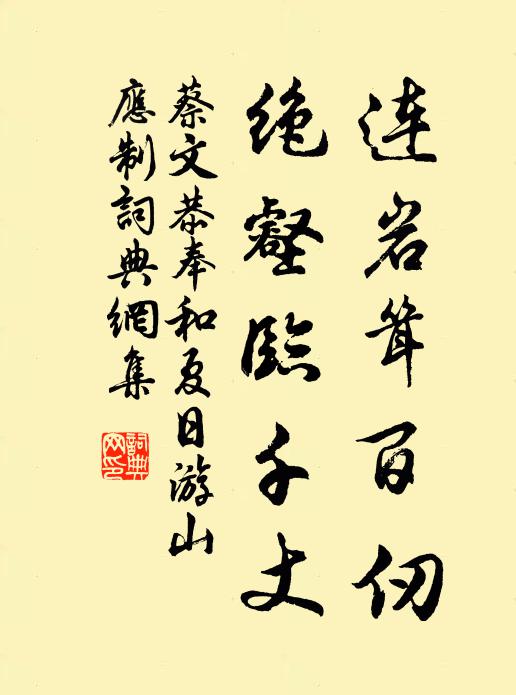 连岩耸百仞
绝壑临千丈
蔡文恭奉和夏日游山
應制詞典網集
詞典网印